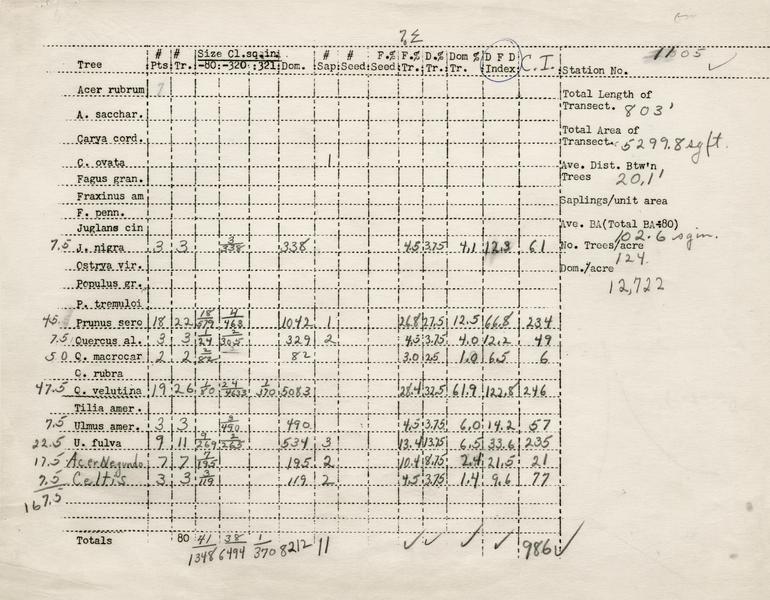 # # Size Cl.sq.in. # # F.% F.% D.% Dom % D F D C. I. 1105
Tree Pts. Tr. -80 -320 321 Dom. Sap. Seed. Seed Tr. Tr. Tr. Index Station No.
Acer rubrum
Total Length of
Transect. 803'
A. sacchar.
Total Area of
Transect. 5299.8 sq ft.
Carya cord.
C. ovata 1
Ave. Dist. Btw'n
Trees 20.1'
Fagus gran.
Fraxinus am
Saplings/unit area
F. penn.
Juglans cin
Ave. BA(Total BA÷80)
102.6 sq in.
7.5 J. nigra 3 3 3/338 338 4.5 3.75 4.1 12.3 61
No. Trees/acre
124.
Ostrya vir.
Dom./acre
12,722
Populus gr.
P. tremuloi
45. Prunus sero 18 22 18/579 4/463 1042 1 26.8 27.5 12.5 66.8 234
7.5 Quercus al. 3 3 1/24 2/305 329 2 4.5 3.75 4.0 12.2 49
50 Q. macrocar 2 2 2/82 82 3.0 2.5 1.0 6.5 6
C. rubra
47.5 Q. velutina 19 26 1/80 24/4633 1/370 5083 28.4 32.5 61.9 122.8 246
Tilia amer.
7.5 Ulmus amer. 3 3 3/490 490 4.5 3.75 6.0 14.2 57
22.5 U. fulva 9 11 9/269 2/265 534 3 13.4 13.75 6.5 33.6 235
17.5 Acer Negundo 7 7 7/195 195 2 10.4 8.75 2.4 21.5 21
7.5 Celtis 3 3 3/119 119 2 4.5 3.75 1.4 9.6 77
167.5
Totals 80 41/1348 38/6494 1/370 8212 11 986